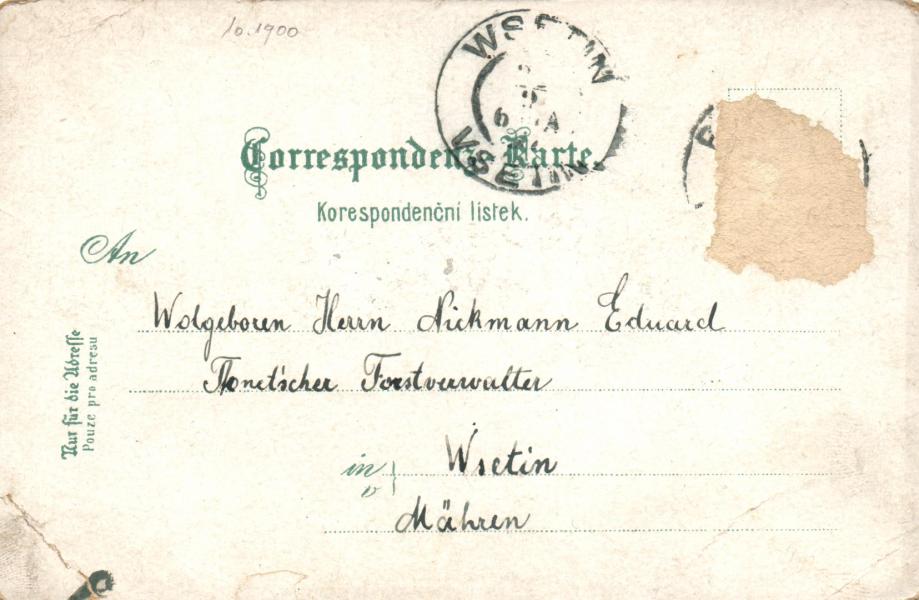 10.1900
WSETIN
6
A
VSETIN
Correspondenz-Karte.
Korespondenční lístek.
An
Wolgeboren Herrn Nickmann Eduard
Thonet'scher Forstverwalter
in
v
Wsetin
Mähren
Nur für die Adresse
Pouze pro adresu